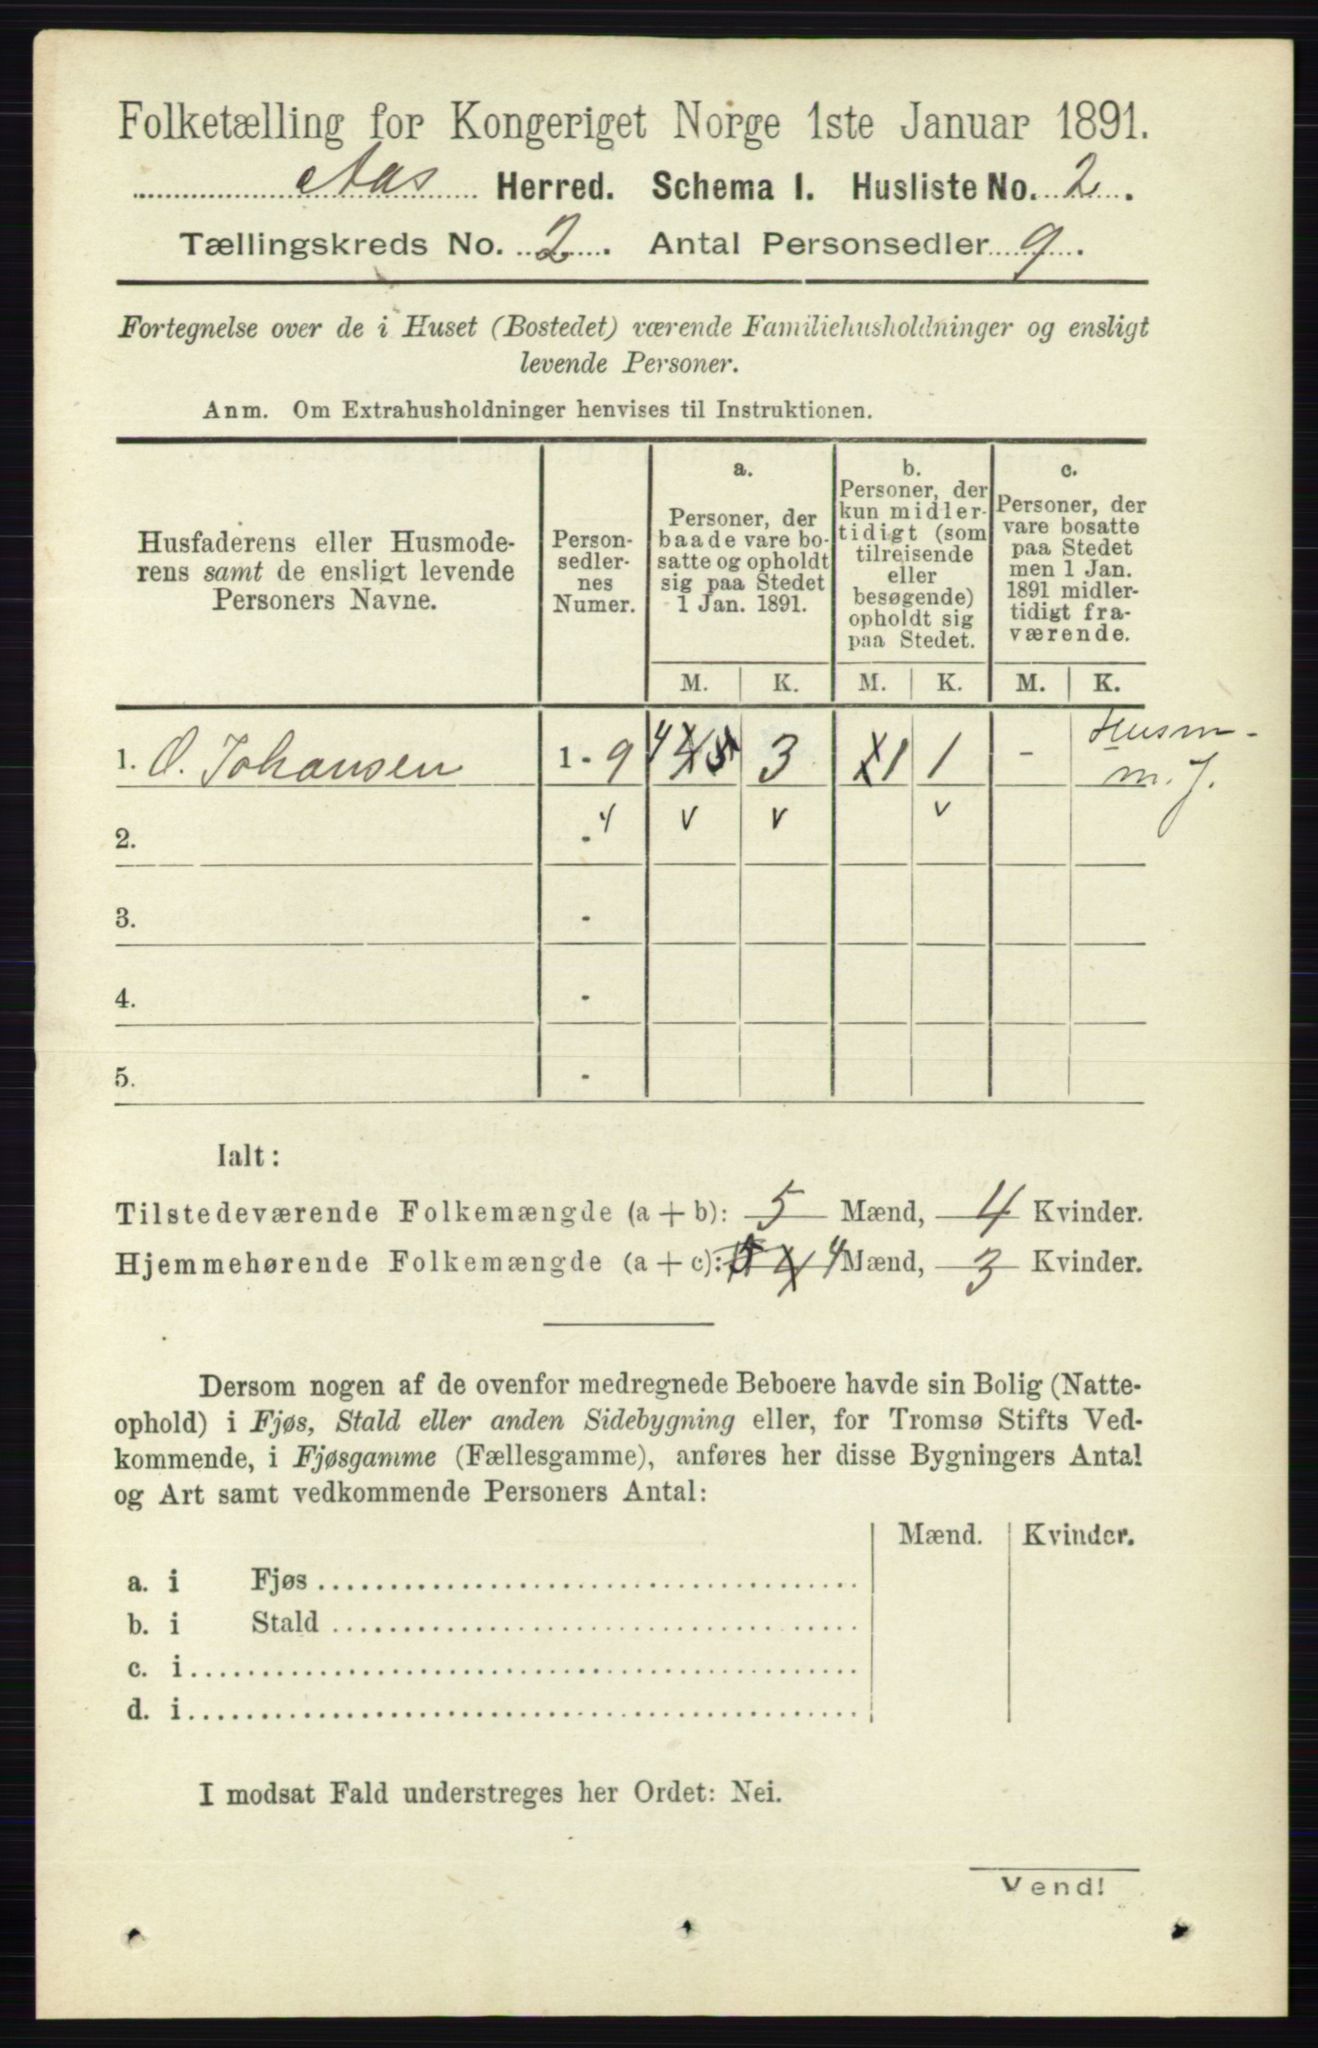 Folketælling for Kongeriget Norge 1ste Januar 1891.
Aas Herred. Schema I. Husliste No. 2.
Tællingskreds No. 2. Antal Personsedler 9.
Fortegnelse over de i Huset (Bostedet) værende Familiehusholdninger og ensligt
levende Personer.
Anm. Om Extrahusholdninger henvises til Instruktionen.
Husfaderens eller Husmode-
rens samt de ensligt levende
Personers Navne.
Person-
sedler-
nes
Numer.
a.
Personer, der
baade vare bo-
satte og opholdt
sig paa Stedet
1 Jan. 1891.
b.
Personer, der
kun midler-
tidigt (som
tilreisende
eller
besøgende)
opholdt sig
paa Stedet.
c.
Personer, der
vare bosatte
paa Stedet
men 1 Jan.
1891 midler-
tidigt fra-
værende.
M. K. M. K. M. K.
1. O. Johansen 1 - 9 4 3 1 1 - Husm -
m. J.
2. - 4 v v v
3. -
4. -
5. -
Ialt:
Tilstedeværende Folkemængde (a + b): 5 Mænd, 4 Kvinder.
Hjemmehørende Folkemængde (a + c): 4 Mænd, 3 Kvinder.
Dersom nogen af de ovenfor medregnede Beboere havde sin Bolig (Natte-
ophold) i Fjøs, Stald eller anden Sidebygning eller, for Tromsø Stifts Ved-
kommende, i Fjøsgamme (Fællesgamme), anføres her disse Bygningers Antal
og Art samt vedkommende Personers Antal:
Mænd. Kvinder.
a. i Fjøs
b. i Stald
c. i
d. i
I modsat Fald understreges her Ordet: Nei.
Vend!